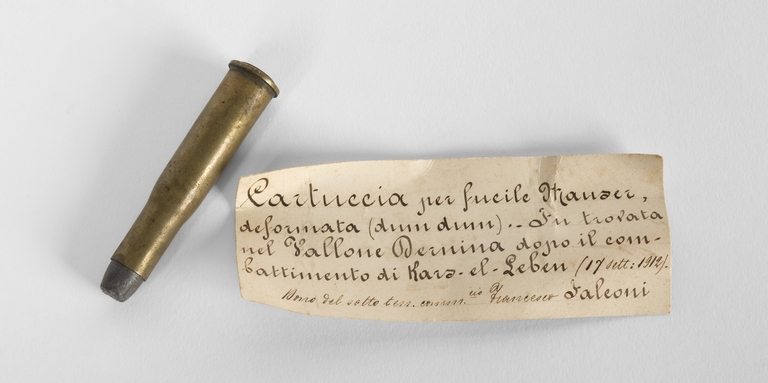 Cartuccia per fucile Mauser,
deformata (dum dum)._ Fu trovata
nel Vallone Dernina dopo il com-
battimento di Kars-el-Leben (17 sett: 1912).
Dono del sotto ten. comm.cio Francesco Falconi